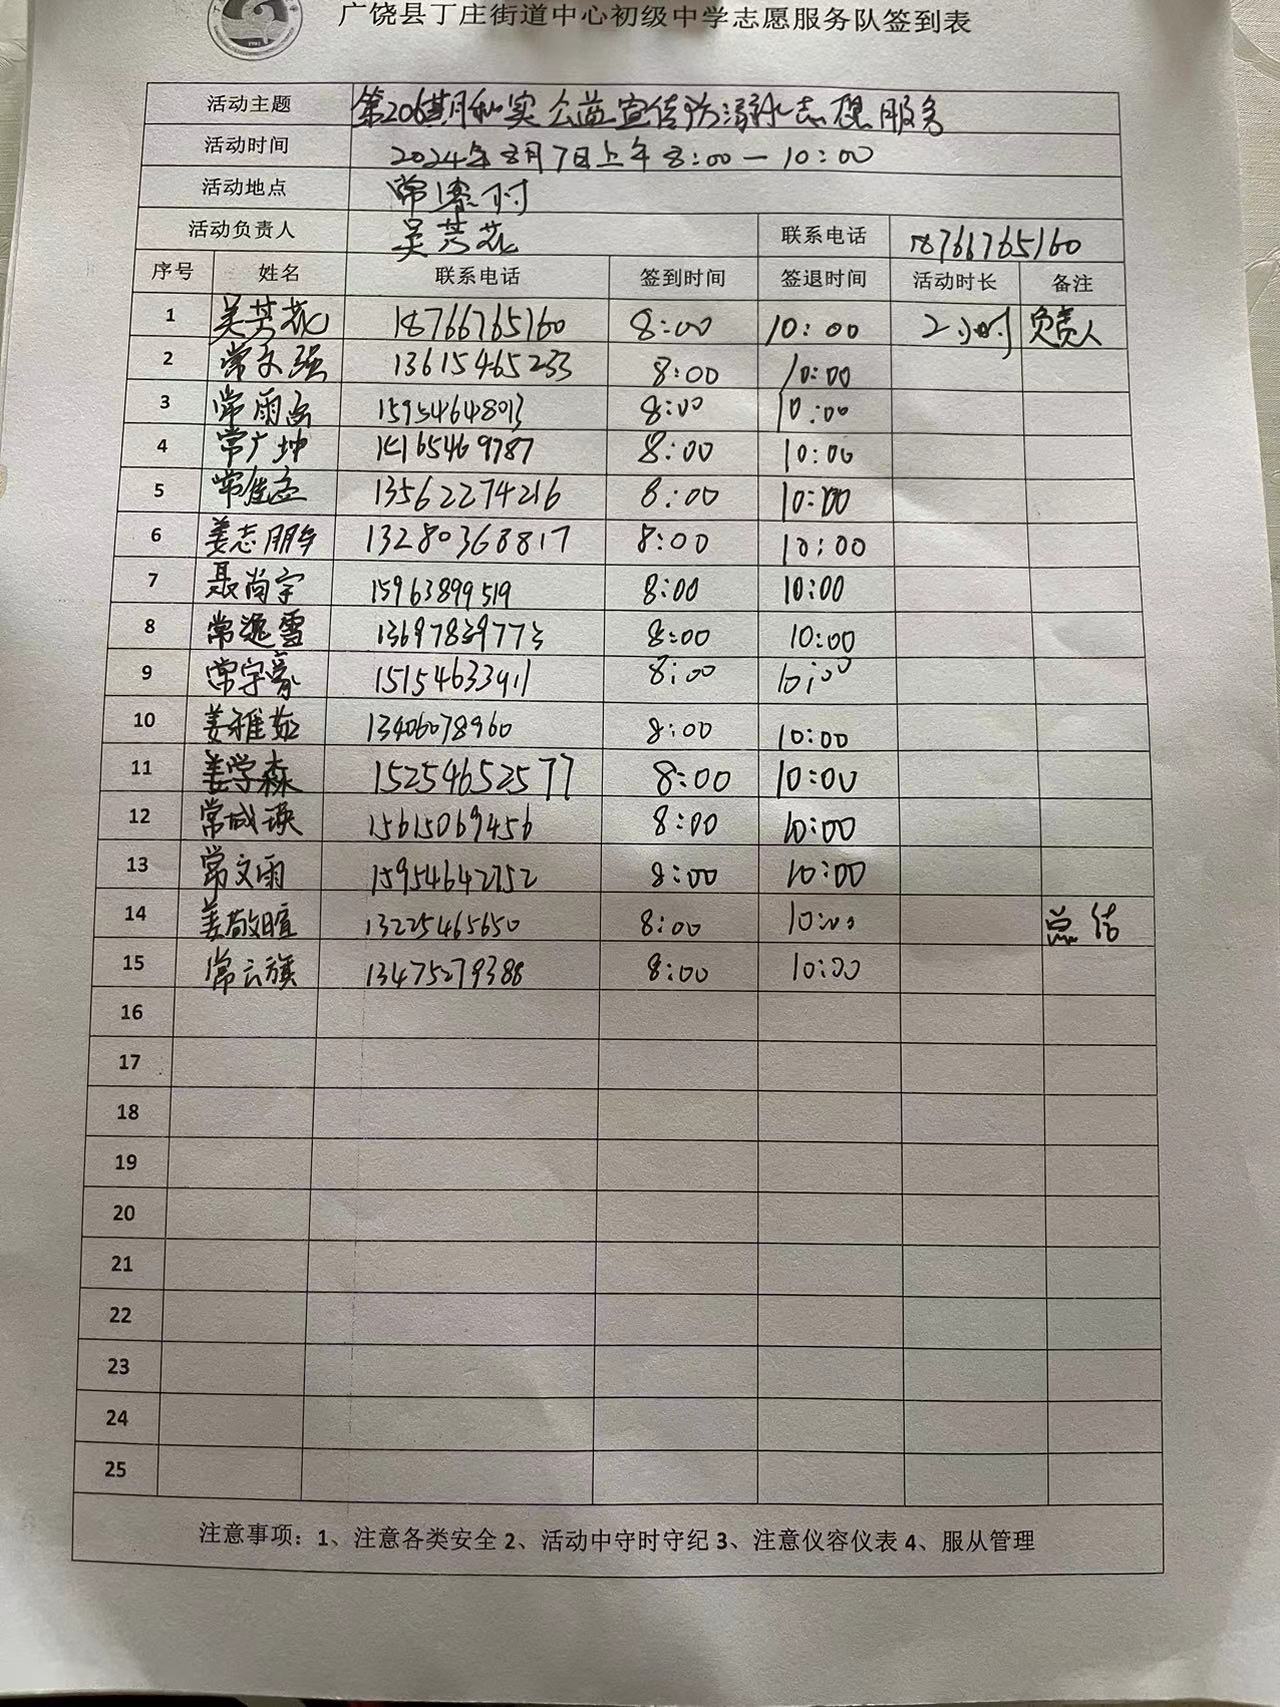 广饶县丁庄街道中心初级中学志愿服务队签到表
活动主题 第206期和实公益宣传防溺水志愿服务
活动时间 2024年8月7日上午8:00—10:00
活动地点 常寨村
活动负责人 吴芳花 联系电话 18766765160
序号 姓名 联系电话 签到时间 签退时间 活动时长 备注
1 吴芳花 18766765160 8:00 10:00 2小时 负责人
2 常文强 13615465233 8:00 10:00
3 常雨函 15954648013 8:00 10:00
4 常广坤 15165469787 8:00 10:00
5 常佳 13562274216 8:00 10:00
6 姜志朋 13280368817 8:00 10:00
7 聂尚宇 15963899519 8:00 10:00
8 常逸雪 13697839773 8:00 10:00
9 常宇豪 15154633911 8:00 10:00
10 姜雅茹 13406078960 8:00 10:00
11 姜学森 15254652577 8:00 10:00
12 常城瑛 15615069456 8:00 10:00
13 常文雨 15954642752 8:00 10:00
14 姜敬暄 13225465650 8:00 10:00 总结
15 常云旗 13475279388 8:00 10:00
16
17
18
19
20
21
22
23
24
25
注意事项：1、注意各类安全 2、活动中守时守纪 3、注意仪容仪表 4、服从管理